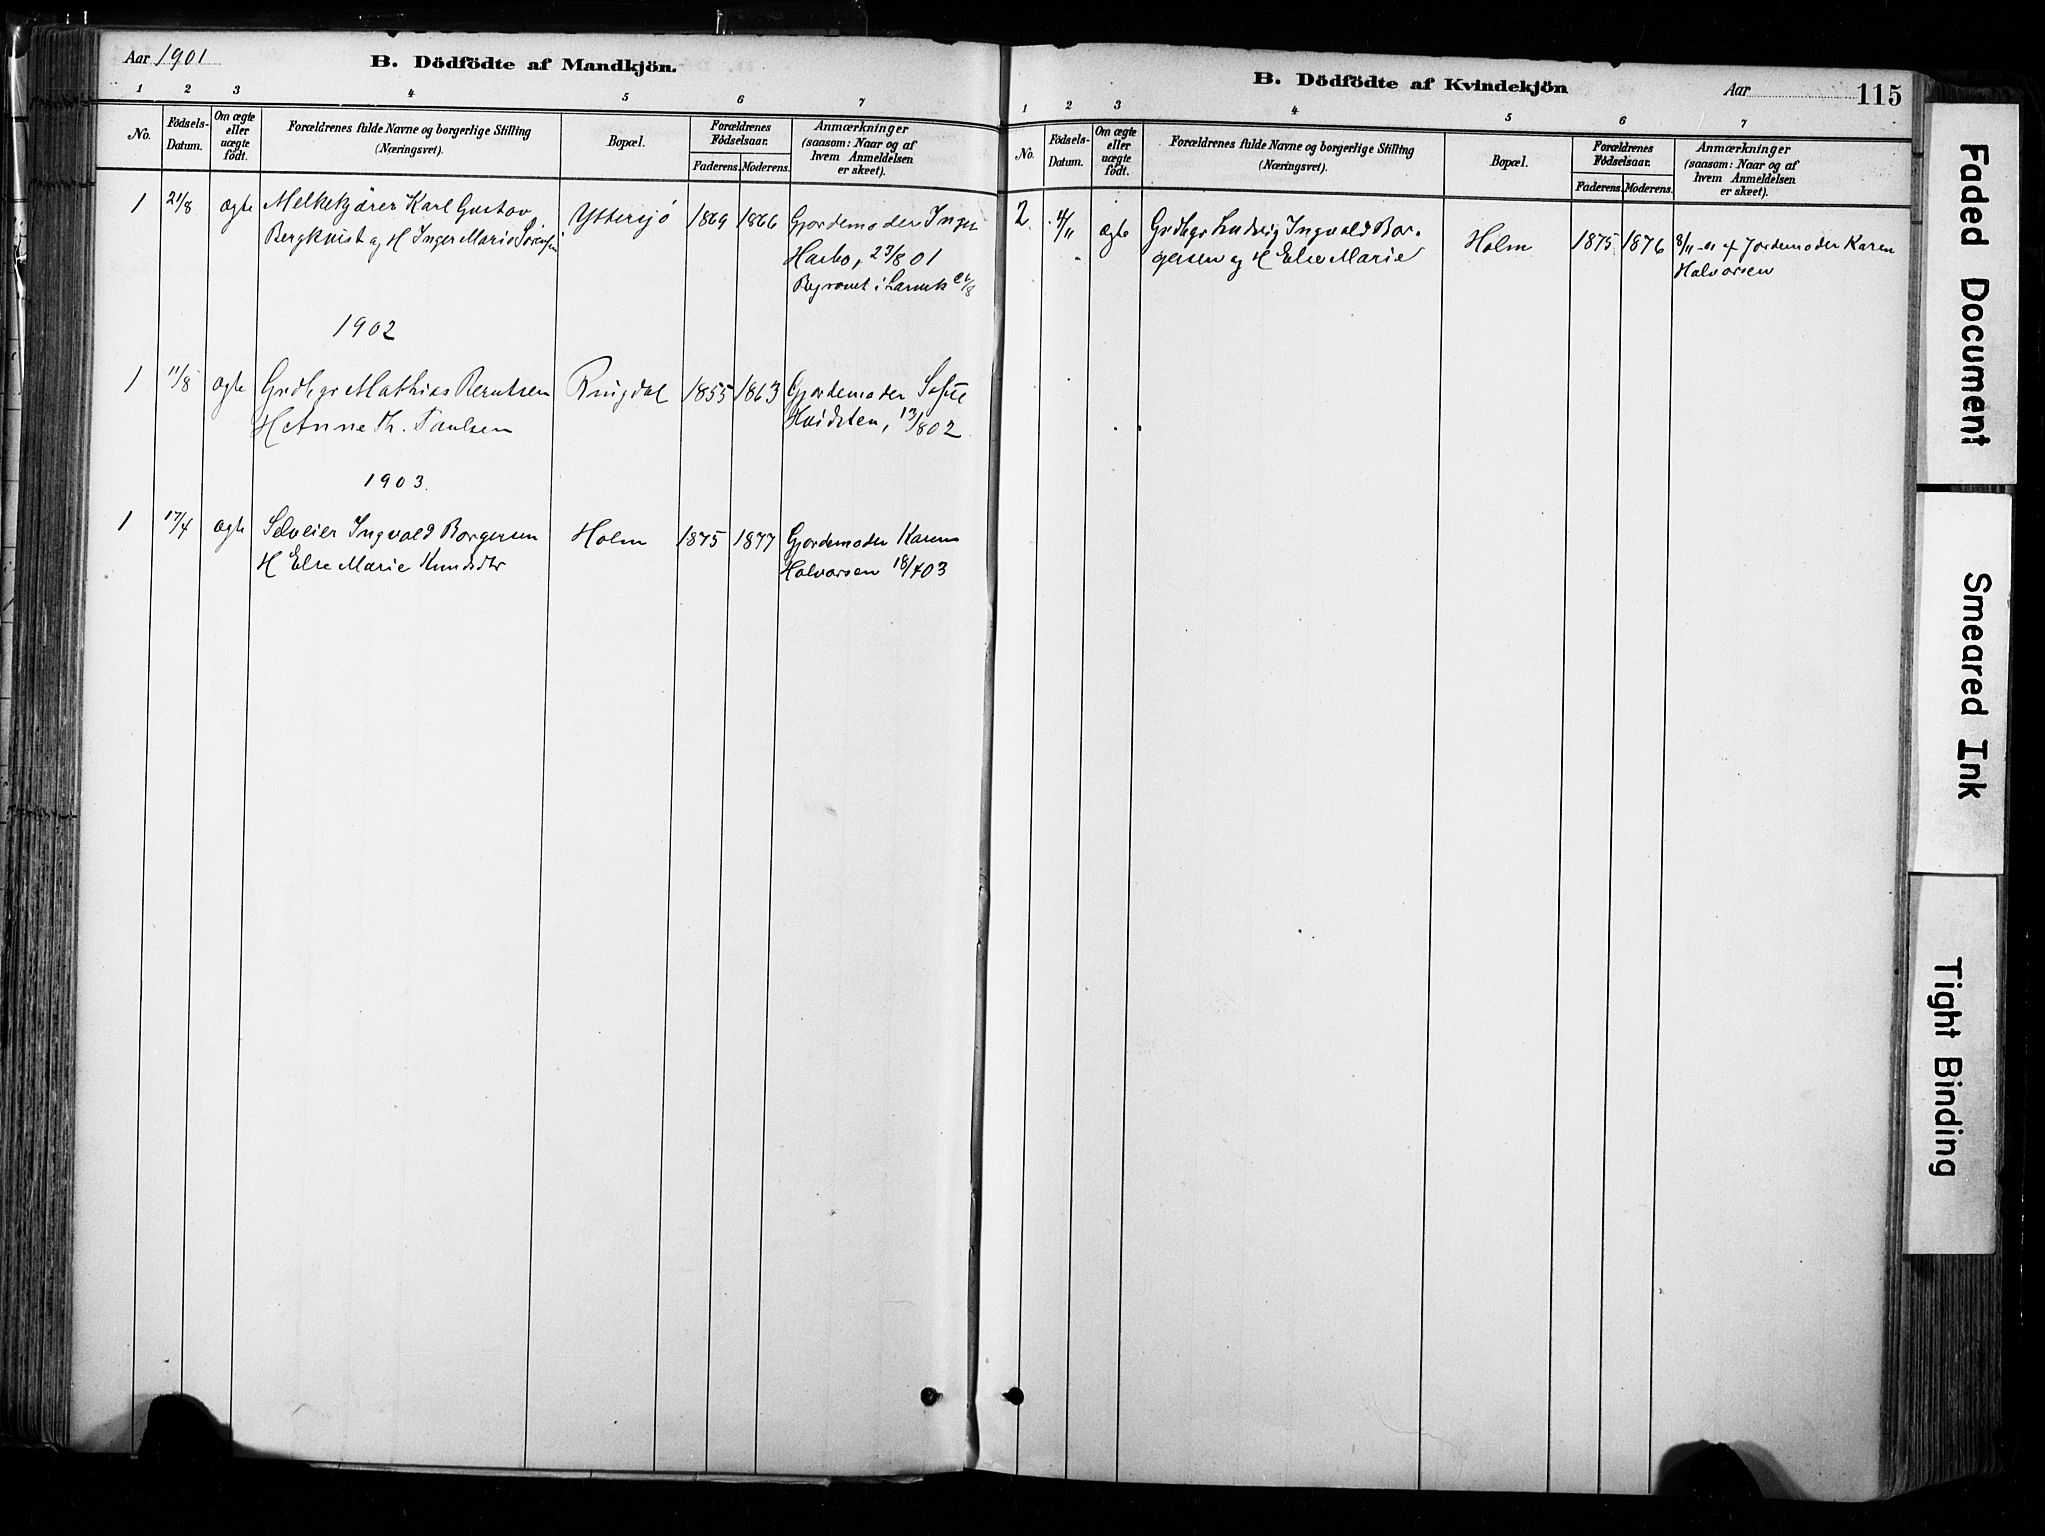 Aar 1901
B. Dödfödte af Mandkjön.
1 2 3 4 5 6 7
No.
Födsels-
Datum.
Om ægte
eller
uægte
födt.
Forældrenes fulde Navne og borgerlige Stilling
(Næringsvei).
Bopæl.
Forældrenes
Födselsaar.
Faderens. Moderens.
Anmærkninger
(saasom: Naar og af
hvem Anmeldelsen
er skeet).
1 21/8 ægte Melkekjører Karl Gustav Yttersjø 1869 1866 Gjordemoder Inger
Bergkvist og H Inger Marie Sørensen Harbo, 23/8 01
Begravet i Larvik
1902
1 11/8 ægte Grdbgr Mathias Berntsen Ringdal 1855 1863 Gjordemoder Sofie
H Anne Th. Paulsen Hvidsten, 13/8 02
1903.
1 17/4 ægte Selveier Ingvald Borgersen Holm 1875 1877 Gjordemoder Karen
H Else Marie Knudsdtr Halvorsen 18/4 03
B. Dödfödte af Kvindekjön
Aar
115
1 2 3 4 5 6 7
No.
Födsels-
Datum.
Om ægte
eller
uægte
födt.
Forældrenes fulde Navne og borgerlige Stilling
(Næringsvei).
Bopæl.
Forældrenes
Födselsaar.
Faderens. Moderens.
Anmærkninger
(saasom: Naar og af
hvem Anmeldelsen
er skeet).
2. 4/11 ægte Grdbgr Ludvig Ingvald Bor- Holm 1875 1876 8/11 01 af Jordemoder Karen
gersen og H Else Marie Halvorsen
Faded Document
Smeared Ink
Tight Binding